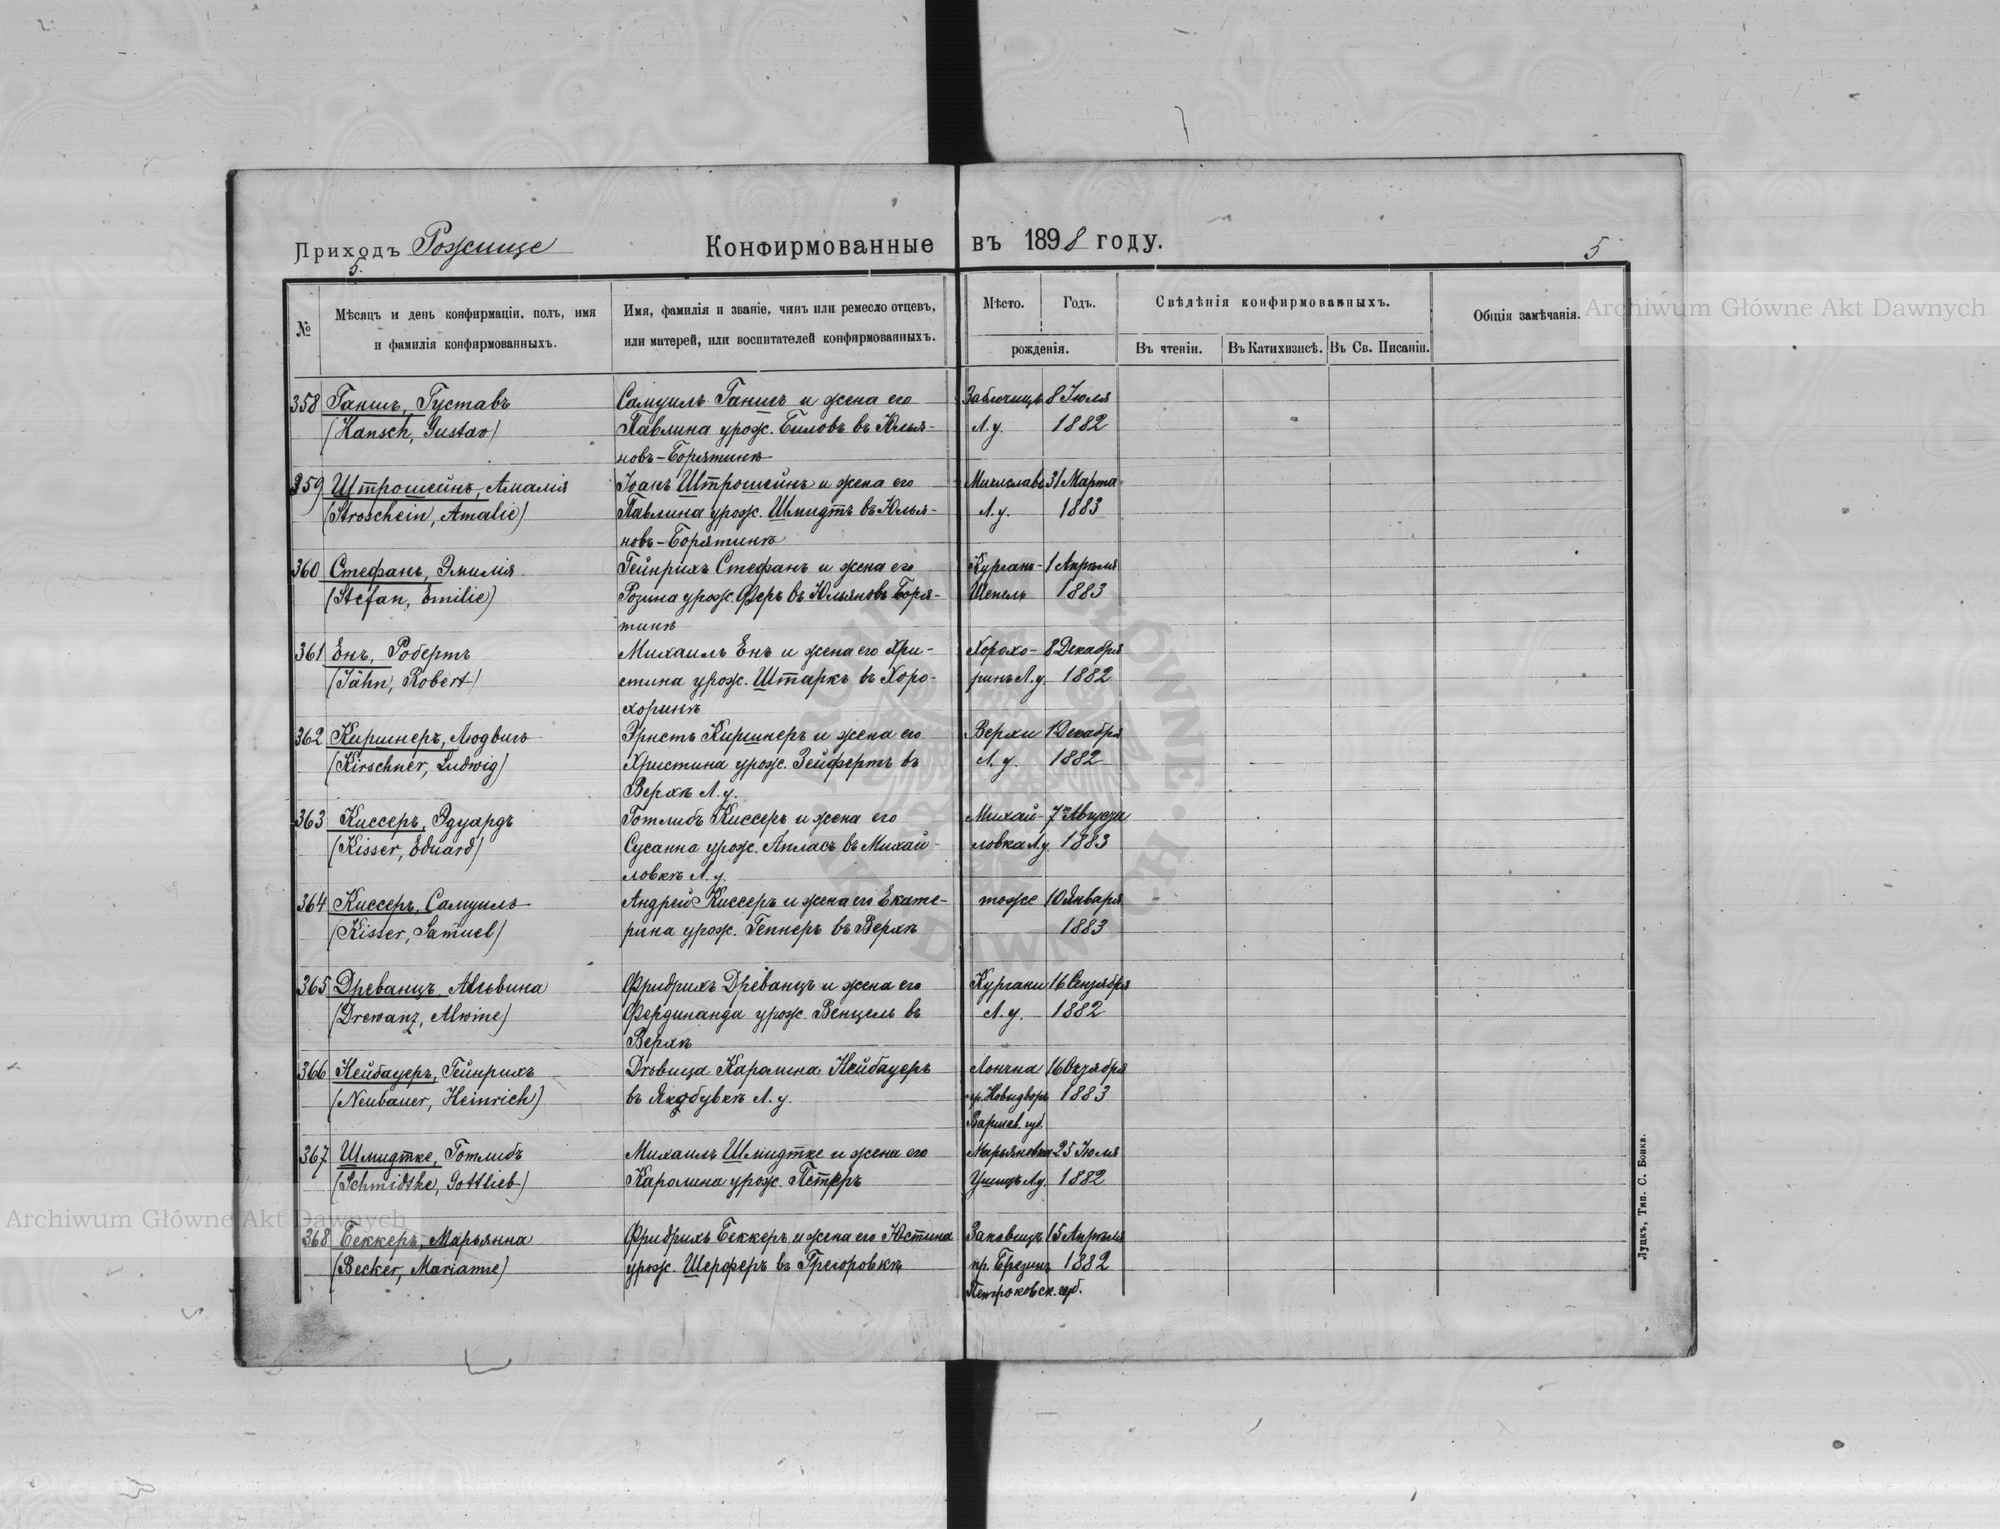 Приходъ Рожище
Конфирмованные въ 1898 году.
5.
5
№
Мѣсяцъ и день конфирмаціи, полъ, имя
и фамилія конфирмованныхъ.
Имя, фамилія и званіе, чинъ или ремесло отцевъ,
или матерей, или воспитателей конфирмованныхъ.
Мѣсто.
Годъ.
рожденія.
Свѣдѣнія конфирмованныхъ.
Въ чтеніи.
Въ Катихизисѣ.
Въ Св. Писаніи.
Общія замѣчанія.
358 Ганшъ, Густавъ Самуилъ Ганшъ и жена его 8 Іюля
(Hansch, Gustav) Павлина урож. Биловъ въ Юлья- Л. у. 1882
новъ-Борятинѣ
359 Штрошейнъ, Амалія Іоанъ Штрошейнъ и жена его Мичиславъ 31 Марта
(Stroschein, Amalie) Павлина урож. Шмидтъ въ Юлья- Л. у. 1883
новъ-Борятинѣ
360 Стефанъ, Эмилія Гейнрихъ Стефанъ и жена его Курганъ- 1 Апрѣля
(Stefan, Emilie) Розина урож. Феръ въ Юльяновъ Боря- Шепель 1883
тинѣ
361 Енъ, Робертъ Михаилъ Енъ и жена его Хри- Хорохо- 8 Декабря
(Jähn, Robert) стина урож. Штаркъ въ Хоро- ринъ Л. у. 1882
хоринѣ
362 Киршнеръ, Людвигъ Эрнстъ Киршнеръ и жена его Верхи 1 Декабря
(Kirschner, Ludwig) Христина урож. Зейфертъ въ Л. у. 1882
Верхѣ Л. у.
363 Киссеръ, Эдуардъ Готлибъ Киссеръ и жена его Михай- 7го Августа
(Kisser, Eduard) Сусанна урож. Апласъ въ Михай- ловка Л у. 1883
ловкѣ Л. у.
364 Киссеръ, Самуилъ Андрей Киссеръ и жена его Екате- тоже 10 Января
(Kisser, Samuel) рина урож. Геннеръ въ Верхѣ 1883
365 Древанцъ, Альвина Фридрихъ Древанцъ и жена его Кургани 16 Сентября
(Drewanz, Alwine) Фердинанда урож. Венцель въ Л. у. 1882
Верхѣ
366 Нейбауеръ, Гейнрихъ Дѣвица Каролина Нейбауеръ Лончна 16 Октября
(Neubauer, Heinrich) въ Якубувкѣ Л. у. 1883
Варшав. губ.
367 Шмидтке, Готлибъ Михаилъ Шмидтке и жена его Марьяновка 25 Іюля
(Schmidtke, Gottlieb) Каролина урож. Петеръ Л у. 1882
368 Беккеръ, Марьянна Фридрихъ Беккеръ и жена его Юстина 15 Апрѣля
(Becker, Marianne) урож. Шерферъ въ Грегоровкѣ пр. Березинъ 1882
Петроковск. губ.
Луцкъ, Тип. С. Бонка.
Archiwum Główne Akt Dawnych
Archiwum Główne Akt Dawnych